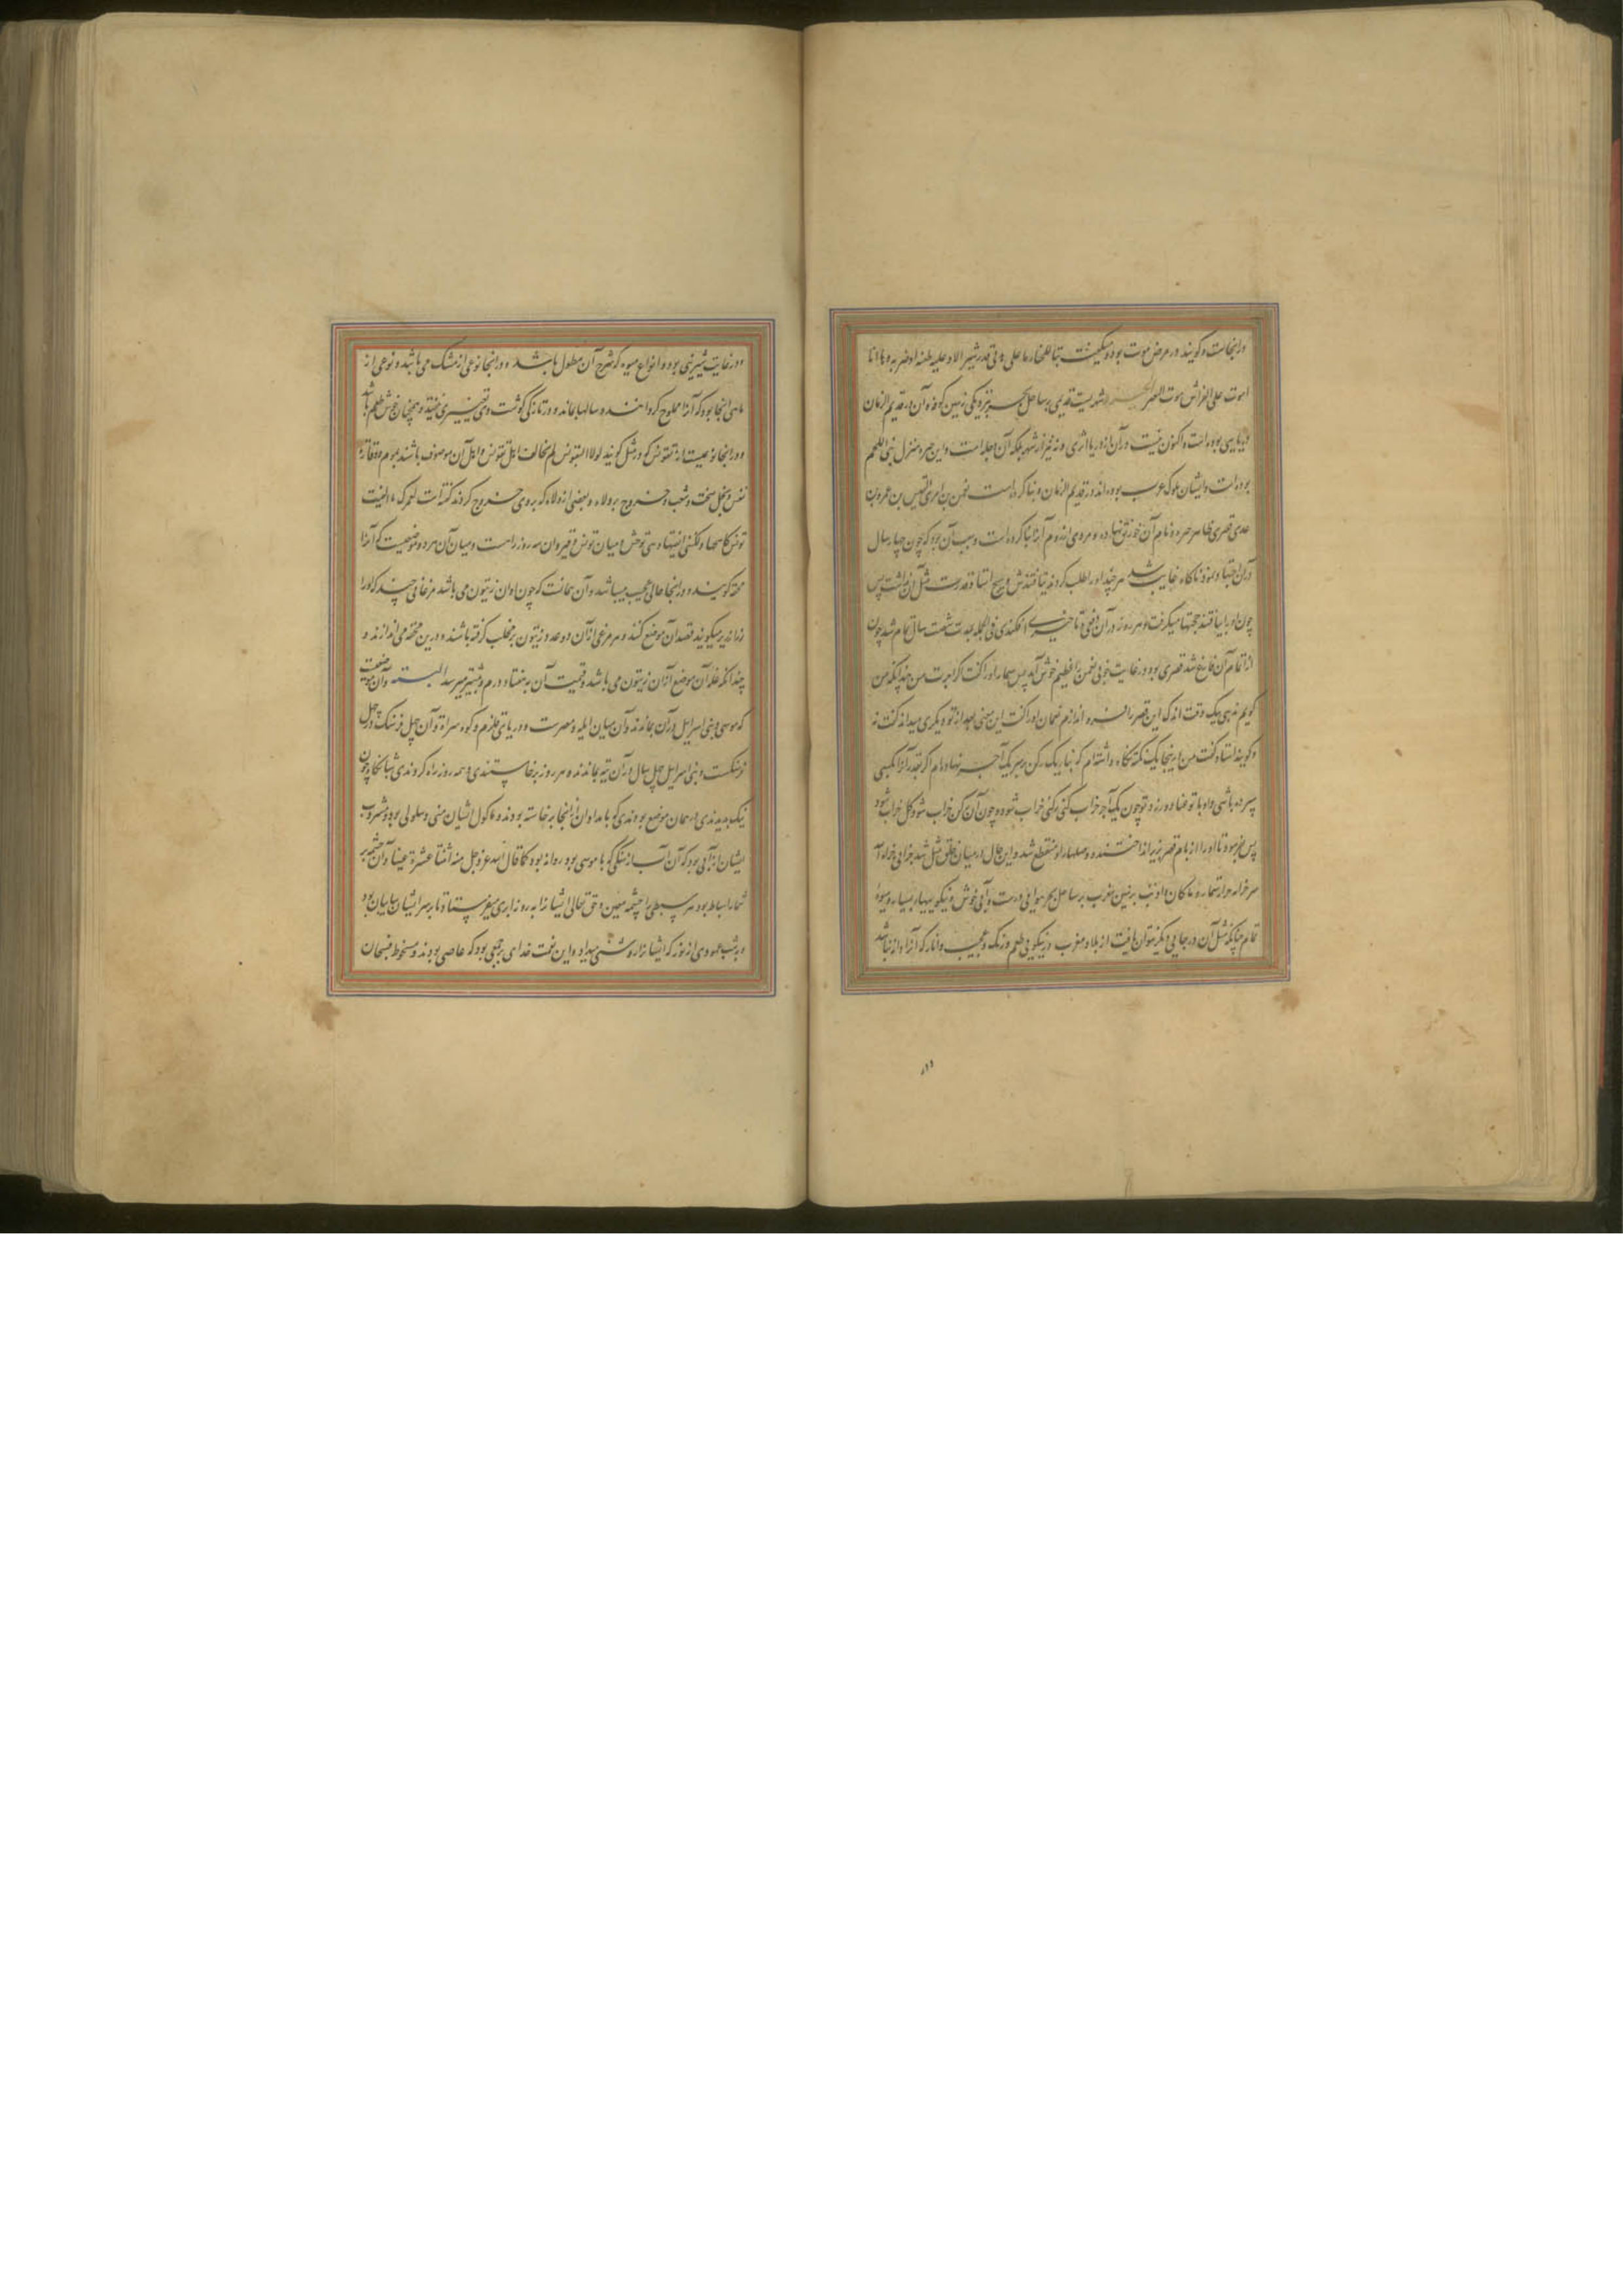 درانجاست و کویند در مرض موت بوده میکفت تبا للخالد ما علی فی قدر شبر الا و علیه طعنه او ضربه وها انا
اموت علی الفراش موت العیر شهریست قدیمی بر ساحل بحر بنزدیکی زمین کوفه آن در قدیم الزمان
دریایی بوده است و اکنون نیست در آن از دریا اثری و نه نیز از شهر بلکه آن دجله است و این حیره منزل بنی اللخم
بوده است و ایشان ملوک عرب بوده اند در قدیم الزمان و بنا کرده است نعمن بن امرئ القیس بن عمرو بن
عدی قصری بظاهر حیره و نام آن خورنق نهاده و مردی از روم آنرا بنا کرده است و سبب آن بود که چون چهار سال
در آن اجتهاد نمود ناکاه غایب شد هر چند او را طلب کردند نیافتندش و هیچ استاد قدرت مثل آن نداشت پس
چون او را بیافتند حجتها میکرفت و هر روز در آن دفعی و تاخیری افکندی فی الجمله بمدت شصت سال تمام شد چون
از اتمام آن فارغ شد قصری بود در غایت خوبی نعمن را عظیم خوش آمد پس سمار او را کفت اکر اجرت من چندانکه من
کویم ندهی بیک وقت اندک این قصر را فرو اندازم نعمان او را کفت این معنی بعد از تو دیکری میداند کفت نه
و کویند استاد کفت من اینجا یک نکته نکاه داشته ام که بنا یک رکن بر سر یک آجر نهاده ام اکر قدر آنرا بکسی
سپرده باشی و او با تو عناد ورزد تو چون یک آجر خراب کنی رکنی خراب شود و چون آن رکن خراب شود کل خراب شود
پس بفرمود تا او را از بام قصر بزیر انداختند و مهلها او منقطع شد و این حال در میان خلق مثل شد جزایی جزاه آ
سر خرابه در ازمنها بر زمین مغرب بر ساحل بحر هوایی درست و آبی خوش و نیکو بسیار بسیار و میوه
تمام چنانکه مثل آن در جایی دیکر نتوان یافت از بلاد مغرب در نیکویی طعم و رنک و عجیب و انار که آنرا دانه نباشد
و در غایت شیرینی بود و انواع میوه که شرح آن مطول باشد و در انجا نوعی از مشک می باشد و نوعی از
ماهی انجا بود که آنرا مملوح کرده اند و سالها بماند و در تازکی کوشت وی تغییری نیفتد و همچنان خوش طعم باشد
و در انجا نوعیست از تونس که در مثل کویند لولا التونس لم یخالف اهل تونس و اهل آن موصوف باشند بلوم و دنائه
نفس و بخل سخت و شعب و خروج بر ولاه و بعضی از ولاه که بروی خروج کردند کفته است لعمرک ما الفیت
تونس کاسمها و لکننی الفیتها وهی توحش و میان تونس و قیروان سه روز راهست و میان آن هر دو موضعیست که آنرا
محقه کویند و در انجا حالی عجیب میباشد و آن بمانست که چون اوان زیتون می باشد مرغانی چند که او را
زرازیر میکویند قصد آن موضع کنند و هر مرغی از آن دو عدد زیتون بر مخلب کرفته باشند و در ین محقه می اندازند و
چندانکه غله آن موضع از آن زیتون می باشد و قیمت آن به هفتاد درم و بیشتر میرسد التیه و آن موضعیست
که موسی و بنی اسرایل در آن بماندند و آن میان ایله و مصرست و دریای قلزم و کوه سراة و آن چهل فرسنک در چهل
فرسنکست و بنی اسرایل چهل سال در آن تیه بماندند و هر روز برخاستندی و همه روز راه کردندی شبانکاه چون
نیک بدیدندی در همان موضع بودندی که بامدادان از انجا برخاسته بودند و ماکول ایشان منی و سلوی بود و مشروب
ایشان از آبی بود که آن آب از سنکی که با موسی بود روانه بود کما قال الله عز و جل منه اثنتا عشرة عینا و آن چشمه بر
شمار اسباط بود هر سبطی را چشمه معین و حق تعالی ایشانرا بروز ابری میفرستاد تا بر سر ایشان سایبان بود
و بشب عمودی از نور که ایشانرا روشنی میداد و این نعمت خدای بر جمعی بود که عاصی بودند و مسخوط فسبحان